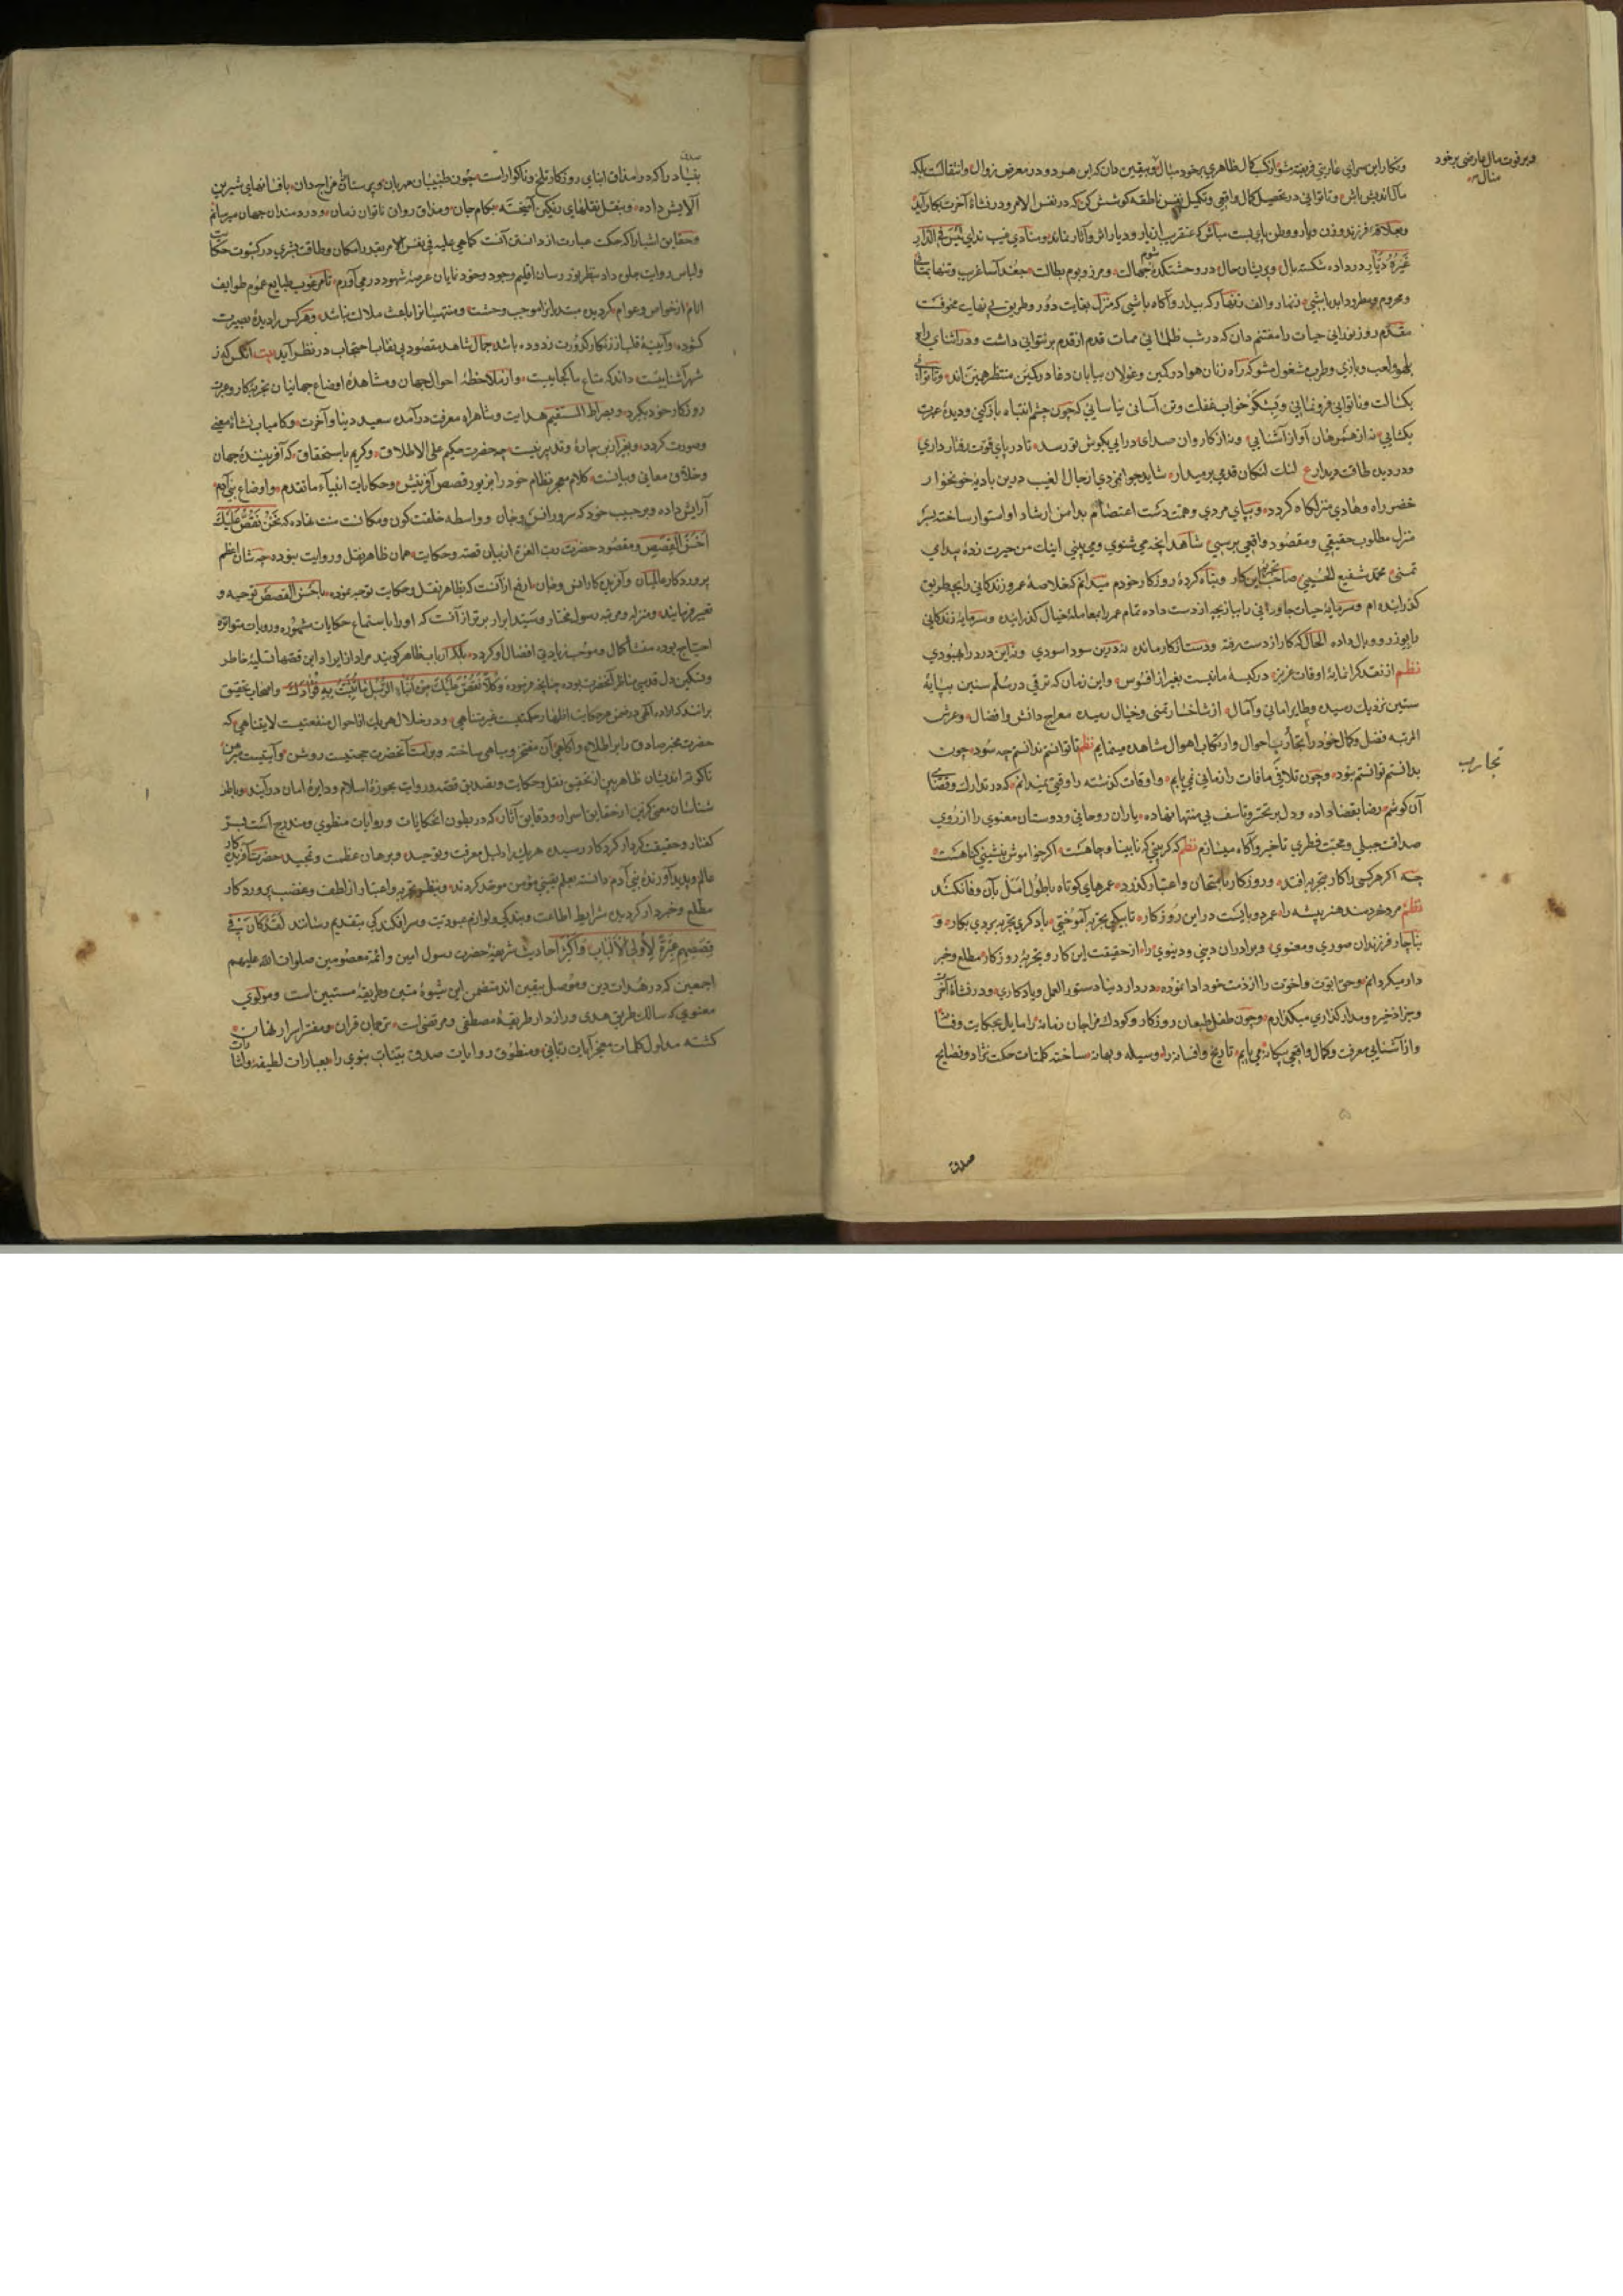 و بر فوت مال عارضی بر خود
منال
ونکار این سرای عاریتی فریفته مشو از کسب کمال ظاهری بر خود مبال و بیقین دان که این هر دو در معرض زوال و انتقالست بلکه
مآل اندیش باش و تا توانی در تحصیل کمال واقعی و تکمیل نفس ناطقه کوشش کن که در نفس الامر و در نشأة آخرت بکار آید
و بعلاقه فرزند و زن و یار و وطن پای بست مباش که عنقریب از یار و دیار اش و آثار نماند و منادی غیب ندای لیس فی الدار
غیره دیار در داده شکسته بال و پریشان حال در وحشتکده شوم جهالت و مرز و بوم بطالت جغد آسا غریب و تنها بمانی
و محروم و مطرود ابد باشی زنهار و الف زنهار که بیدار و آگاه باشی که منزل بغایت دور و طریق بی نهایت مخوفست
مقدم روز نورانی حیات را مغتنم دان که در شب ظلمانی ممات قدم از قدم بر نتوانی داشت و در اثنای راه
بلهو و لعب و بازی و طرب مشغول مشو که راه زنان هوا در کمین و غولان بیابان دغا در کمین منتظر همین اند و تا توانی
بکسالت و ناتوانی فرو نمانی و بشکر خواب غفلت و تن آسانی نیاسایی که چون چشم انتباه باز کنی و دیده عبرت
بکشایی نه از همرهان آواز آشنایی و نه از کاروان صدای درایی بکوش تو رسد تا در پای قوت رفتار داری
و در دیده طاقت دیدار ع لنک لنکان قدمی بر میدار شاید جوانمردی از رجال الغیب درین بادیه خونخوار
خضر راه و هادی منزلکاه کردد و بپای مردی و همت دست اعتصام بدامن ارشاد او استوار ساخته بسر
منزل مطلوب حقیقی و مقصود واقعی برسی شاهد آنچه می شنوی و می بینی اینک من حیرت زده بیدای
تمنی محمد شفیع الحسینی صاحب تجربه این کار و تباه کرده روزکار خودم میدانم که خلاصه عمر و زندکانی را بچه طریق
کذرانیده ام و سرمایه حیات جاودانی را ببازیچه از دست داده تمام عمر را بمعامله خیال کذرانیده و سرمایه زندکانی
را بوزر و وبال داده الحال که کار از دست رفته و دست از کار مانده نه درین سودا سودی و نه این درد را بهبودی
نظم از نقد کرانمایه اوقات عزیز در کیسه ما نیست بغیر از افسوس و این زمان که ترقی در سلم سنین بپایه
ستین نزدیک رسیده و طایر امانی و آمال از شاخسار تمنی و خیال رمیده معراج دانش و افضال و عرش
المرتبه فضل و کمال خود را بتجارب احوال و ارتکاب اهوال مشاهده مینمایم نظم تا توانستم ندانستم چه سود چون
تجارب
بدانستم توانستم نبود و چون تلافی مافات را زمانی نمی یابم و اوقات کذشته را وقتی نمیدانم که در تدارک و قضای
آن کوشم رضا بقضا داده و دل بر تحسر و تاسف بی منتها نهاده یاران روحانی و دوستان معنوی را از روی
صداقت جبلی و محبت فطری تا خبر و آگاه میسازم نظم که کر بینی که نابینا و چاهست اکر خاموش بنشینی کناهست
چه اکر هر کس را کار بتجربه افتد و روزکار بامتحان و اعتبار کذرد عمرهای کوتاه با طول امل بآن وفا نکند
نظم مرد خردمند هنر پیشه را عمر دو بایست درین روزکار تا بیکی تجربه آموختی با دکری تجربه بردی بکار و
بناچار فرزندان صوری و معنوی و برادران دینی و دنیوی را از حقیقت این کار و تجربه روزکار مطلع و خبر
دار میکردانم و حق ابوت و اخوت را از ذمت خود ادا نموده در دار دنیا دستور العمل و یادکاری و در نشأة آخرت
و جزا ذخیره و مدار کذاری میکذارم و چون طفل طبعان روزکار و کودک مزاجان زمانه را مایل بحکایت و فسانه
و از آشنایی معرفت و کمال واقعی بیکانه می یابم تاریخ و افسانه را وسیله و بهانه ساخته کلمات حکمت نژاد و نصایح
صدق
صدق
بنیاد را که در مذاق ابنای روزکار تلخ و ناکوار است چون طبیبان مهربان و پرستاران مزاج دان بافسانهای شیرین
آلایش داده و بنقل نقلهای رنکین آمیخته بکام جان و مذاق روان ناتوان زمان و دردمندان جهان میرسانم
و حقایق اشیا را که حکمت عبارت از دانستن آنست کماهی علیه فی نفس الامر بقدر امکان و طاقت بشری در کسوت حکایت
و لباس روایت جلوه داده بنظر نوررسان اقلیم وجود و خود نمایان عرصه شهود در می آورم تا مرغوب طبایع عموم طوایف
انام از خواص و عوام کردیده مبتدیانرا موجب وحشت و منتهیانرا باعث ملالت نباشد و هر کس را دیده بصیرت
کشوده و آیینه قلب از زنکار کدورت زدوده باشد جمال شاهد مقصود بی نقاب احتجاب در نظر آید بیت آنکس که ز
شهر آشناییست داند که متاع ما کجاییست و از ملاحظه احوال جهان و مشاهده اوضاع جهانیان تجربه کار و عبرت
روزکار خود بکیرد و بصراط المستقیم هدایت و شاهراه معرفت در آمده سعید دنیا و آخرت و کامیاب نشاة معنی
و صورت کردد و بغیر ازین چاره و تدبیر نیست چه حضرت حکیم علی الاطلاق و کریم باستحقاق که آفریننده جهان
و خلاق معانی و بیانست کلام معجز نظام خود را بزیور قصص آفرینش و حکایات انبیآء ماتقدم و اوضاع بنی آدم
آرایش داده و بر حبیب خود که سرور انس و جان و واسطه خلقت کون و مکانست منت نهاده که نحن نقص علیک
احسن القصص و مقصود حضرت رب العزة از بیان قصه و حکایت همان ظاهر نقل و روایت نبوده چه شان اعظم
پروردکار عالمیان و آفریدکار انس و جان ارفع از آنست که بظاهر نقل و حکایت توجه نموده باحسن القصص توجیه و
تعبیر فرمایند و منزله و مرتبه رسول مختار و سید ابرار برتر از آنست که او را باستماع حکایات مشهوره و روایات متواتره
احتیاج بوده منشأ کمال و موجب زیادتی افضال او کردد بلکه ارباب ظاهر کویند مراد از ایراد این قصها تسلیه خاطر
و تسکین دل قدسی مناظر آنحضرت بوده چنانچه فرموده وکلا نقص علیک من انباء الرسل ما نثبت به فؤادک و اصحاب تحقیق
برانند که اراده الهی در ضمن هر حکایت اظهار حکمتیست غیر متناهی و در خلال هر یک از احوال منفعتیست لایتناهی که
حضرت مخبر صادق را بر اطلاع و آکاهی آن مفتخر و مباهی ساخته و برامت آنحضرت حجتیست روشن و آیتیست مبرهن
تا کوته اندیشان ظاهر بین از تحقیق نقل و حکایت و تصدیق قصه و روایت بحوزه اسلام و دایره امان در آیند و باطن
شناسان معنی کزین از حقایق اسرار و دقایق آثار که در بطون آنحکایات و روایات منطوی و مندرج است بسر
کفتار و حقیقت کردار کردکار رسیده هر یک را دلیل معرفت و توحید و برهان عظمت و تمجید حضرت آفریدکار
عالم و پدید آورنده بنی آدم دانسته بعلم یقینی مؤمن موحد کردند و بنظر تجربه و اعتبار از لطف و غضب پروردکار
مطلع و خبردار کردیده شرایط اطاعت و بندکی و لوازم عبودیت و سرافکندکی بتقدیم رسانند لقد کان فی
قصصهم عبرة لاولی الالباب و اکثر احادیث شریفه حضرت رسول امین و ائمه معصومین صلوات الله علیهم
اجمعین که در هدات دین و موصل بیقین اند متضمن این شیوه متین و طریقه مستبین است و مولوی
معنوی که سالک طریق هدی و رازدار طریقه مصطفی و مرتضی است ترجمان قران و مفسر اسرار نهان
کشته مدلول کلمات معجز آیات ربانی و منطوق روایات صدق بینات نبوی را بعبارات لطیفه و اشارات